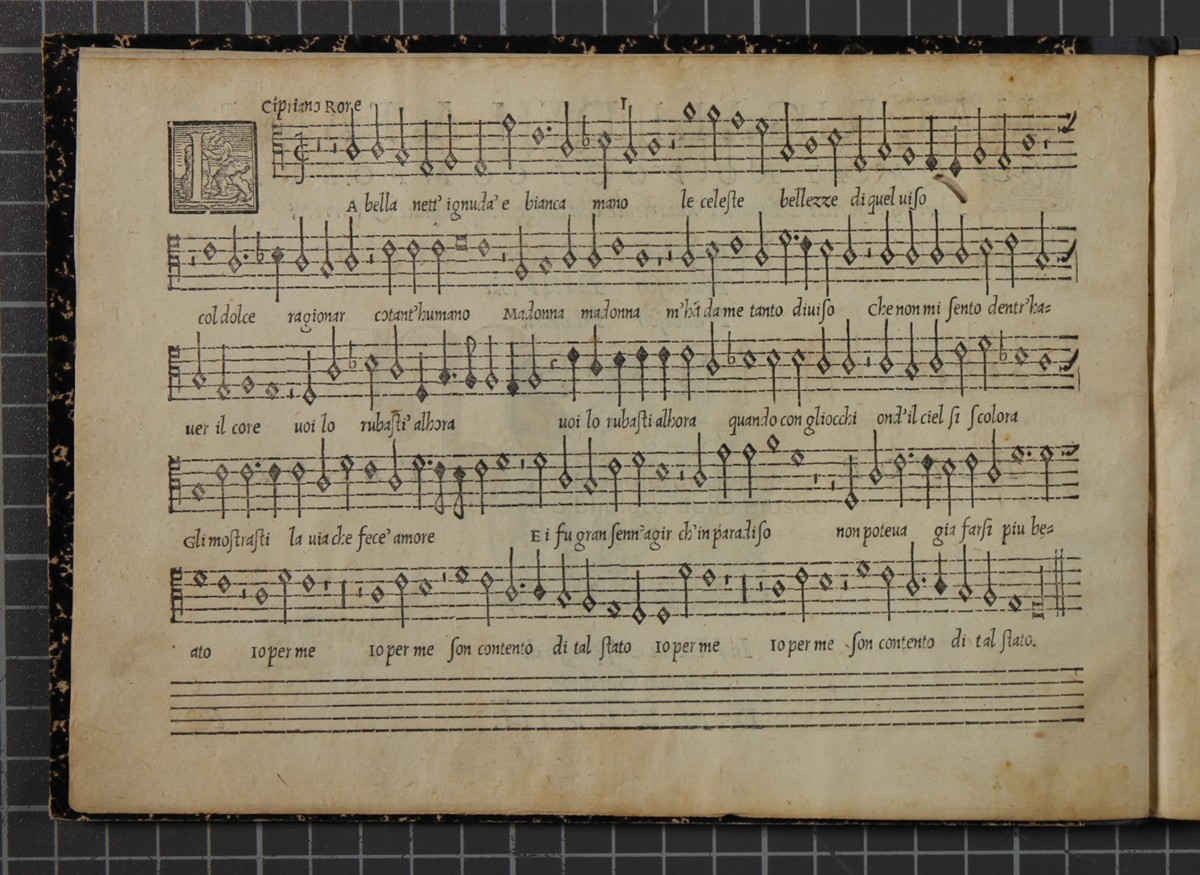 Cipriano Rore 1
LA bella nett' ignuda' e bianca mano le celeste bellezze di quel uiso
col dolce ragionar cotant'humano Madonna madonna m'há da me tanto diuiso Che non mi sento dentr'ha=
uer il core uoi lo rubasti' alhora uoi lo rubasti alhora quando con gliocchi ond'il ciel si scolora
Gli mostrasti la uia che fece' amore E i fu gran senn'agir ch'in paradiso non poteua gia farsi piu be=
ato io per me io per me son contento di tal stato io per me io per me son contento di tal stato.